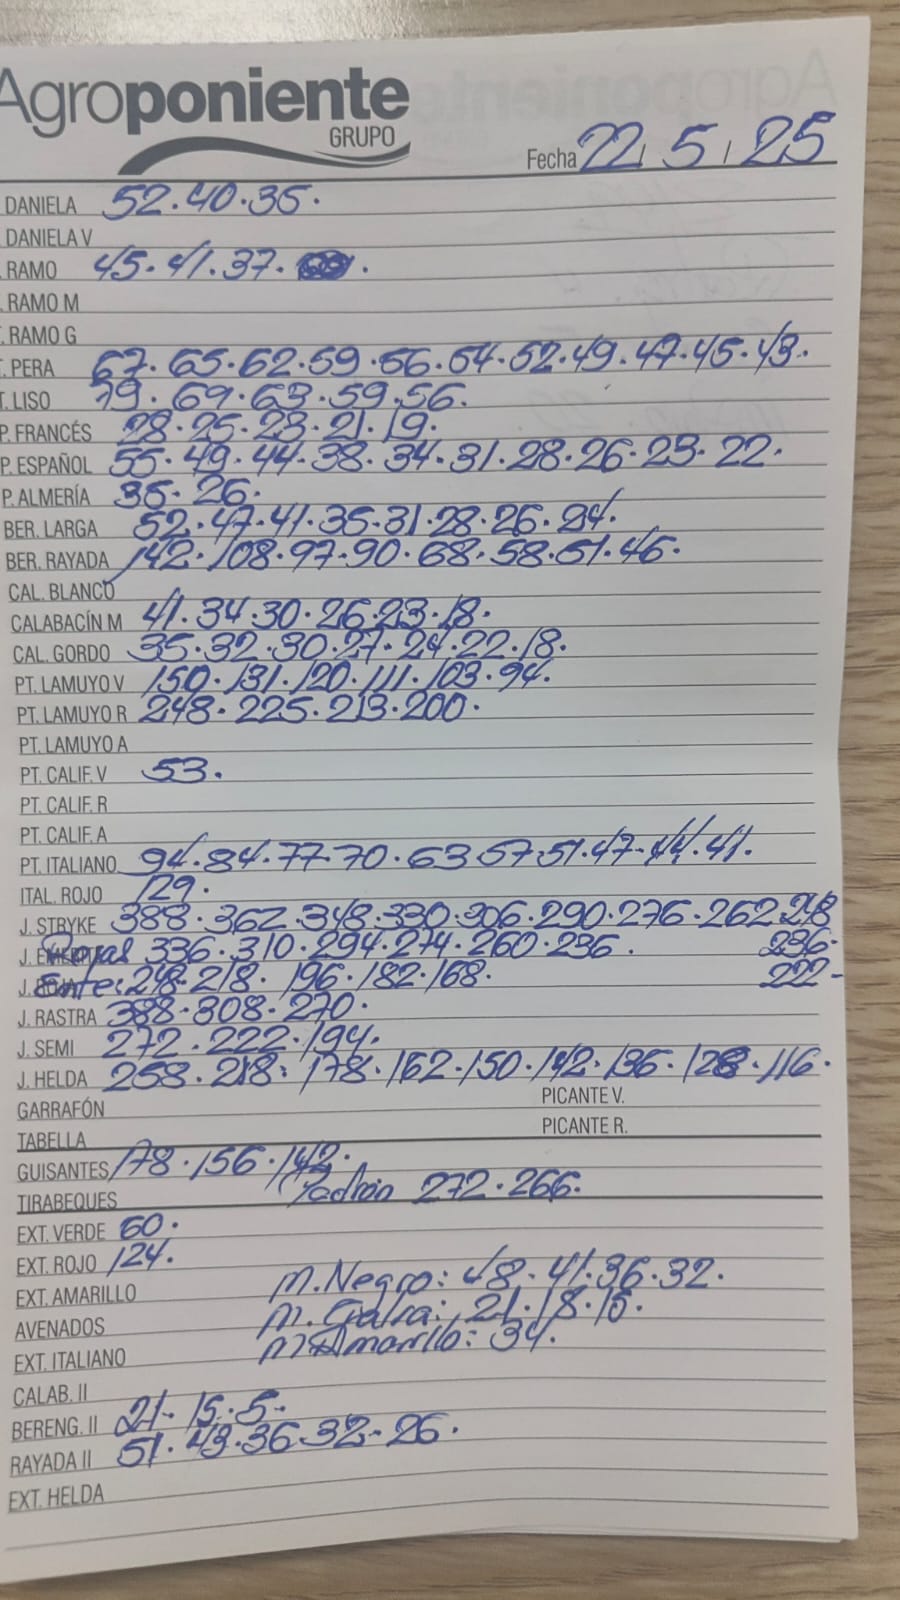 Agroponiente
GRUPO
Fecha 22/5/25
DANIELA 52.40.35.
DANIELA V
RAMO 45.41.37.
RAMO M
RAMO G
T. PERA 67.65.62.59.56.54.52.49.47.45.43.
T. LISO 79.69.63.59.56.
P. FRANCÉS 28.25.23.21.19.
P. ESPAÑOL 55.49.44.38.34.31.28.26.23.22.
P. ALMERÍA 35.26.
BER. LARGA 52.47.41.35.31.28.26.24.
BER. RAYADA 142.108.97.90.68.58.51.46.
CAL. BLANCO
CALABACÍN M 41.34.30.26.23.18.
CAL. GORDO 35.32.30.27.24.22.18.
PT. LAMUYO V 150.131.120.111.103.94.
PT. LAMUYO R 248.225.213.200.
PT. LAMUYO A
PT. CALIF. V 53.
PT. CALIF. R
PT. CALIF. A
PT. ITALIANO 94.84.77.70.63 57.51.47.44.41.
ITAL. ROJO 129.
J. STRYKE 388.362.348.330.306.290.276.262 248
J. Rojas 336.310.294.274.260.236. 236.
J. Ente: 248.218.196.182.168. 222-
J. RASTRA 388.308.270.
J. SEMI 272.222.194.
J. HELDA 258.218.178.162.150.142.136.128.116.
GARRAFÓN PICANTE V.
TABELLA PICANTE R.
GUISANTES 178.156.142.
TIRABEQUES Padrón 272.266.
EXT. VERDE 60.
EXT. ROJO 124.
EXT. AMARILLO M. Negro: 48.41.36.32.
AVENADOS M. Galia: 21.18.15.
EXT. ITALIANO M. Amarillo: 34.
CALAB. II
BERENG. II 21.15.5.
RAYADA II 51.43.36 32.26.
EXT. HELDA